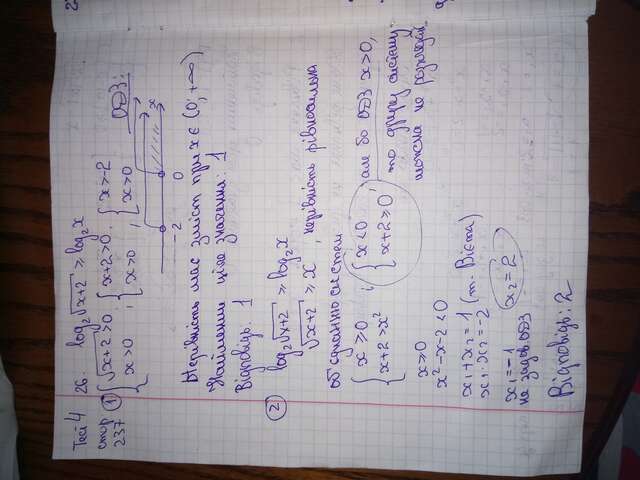 Тест 4 26. log₂√(x+2) ≥ log₂x
стор 237
① { √(x+2) > 0, x > 0 ; { x+2 > 0, x > 0 ; { x > -2, x > 0 ОДЗ:
-2 0 x
Нерівність має зміст при x ∈ (0; +∞)
Найменше ціле значення: 1
Відповідь. 1
② log₂√(x+2) ≥ log₂x
√(x+2) ≥ x , нерівність рівносильна
об'єднанню систем
{ x ≥ 0, x+2 > x² ; { x < 0, x+2 ≥ 0 , але бо ОДЗ x > 0,
то другу систему
можна не розглядати
x ≥ 0
x² - x - 2 < 0
x₁ + x₂ = 1 (т. Вієта)
x₁ · x₂ = -2
x₁ = -1 x₂ = 2
не задов. ОДЗ
Відповідь: 2